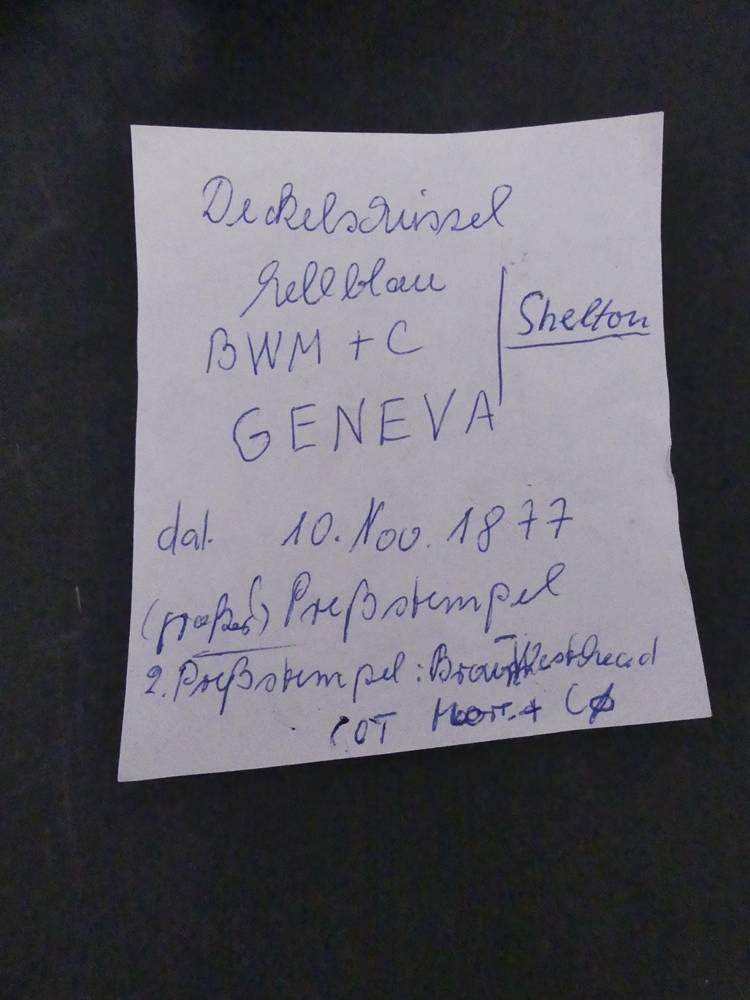 Deckelschüssel
hellblau
BWM + C
GENEVA
Shelton
dat. 10. Nov. 1877
(großer) Preßstempel
2. Preßstempel: Westhead
+ C